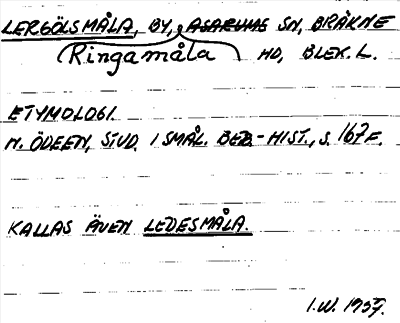 LERGÖLSMÅLA, BY, ASARUMS SN, BRÄKNE
Ringamåla HD, BLEK. L.
ETYMOLOGI.
N. ÖDEEN, STUD. I SMÅL. BEB.-HIST., S. 167 F.
KALLAS ÄVEN LEDESMÅLA.
I.W. 1957.